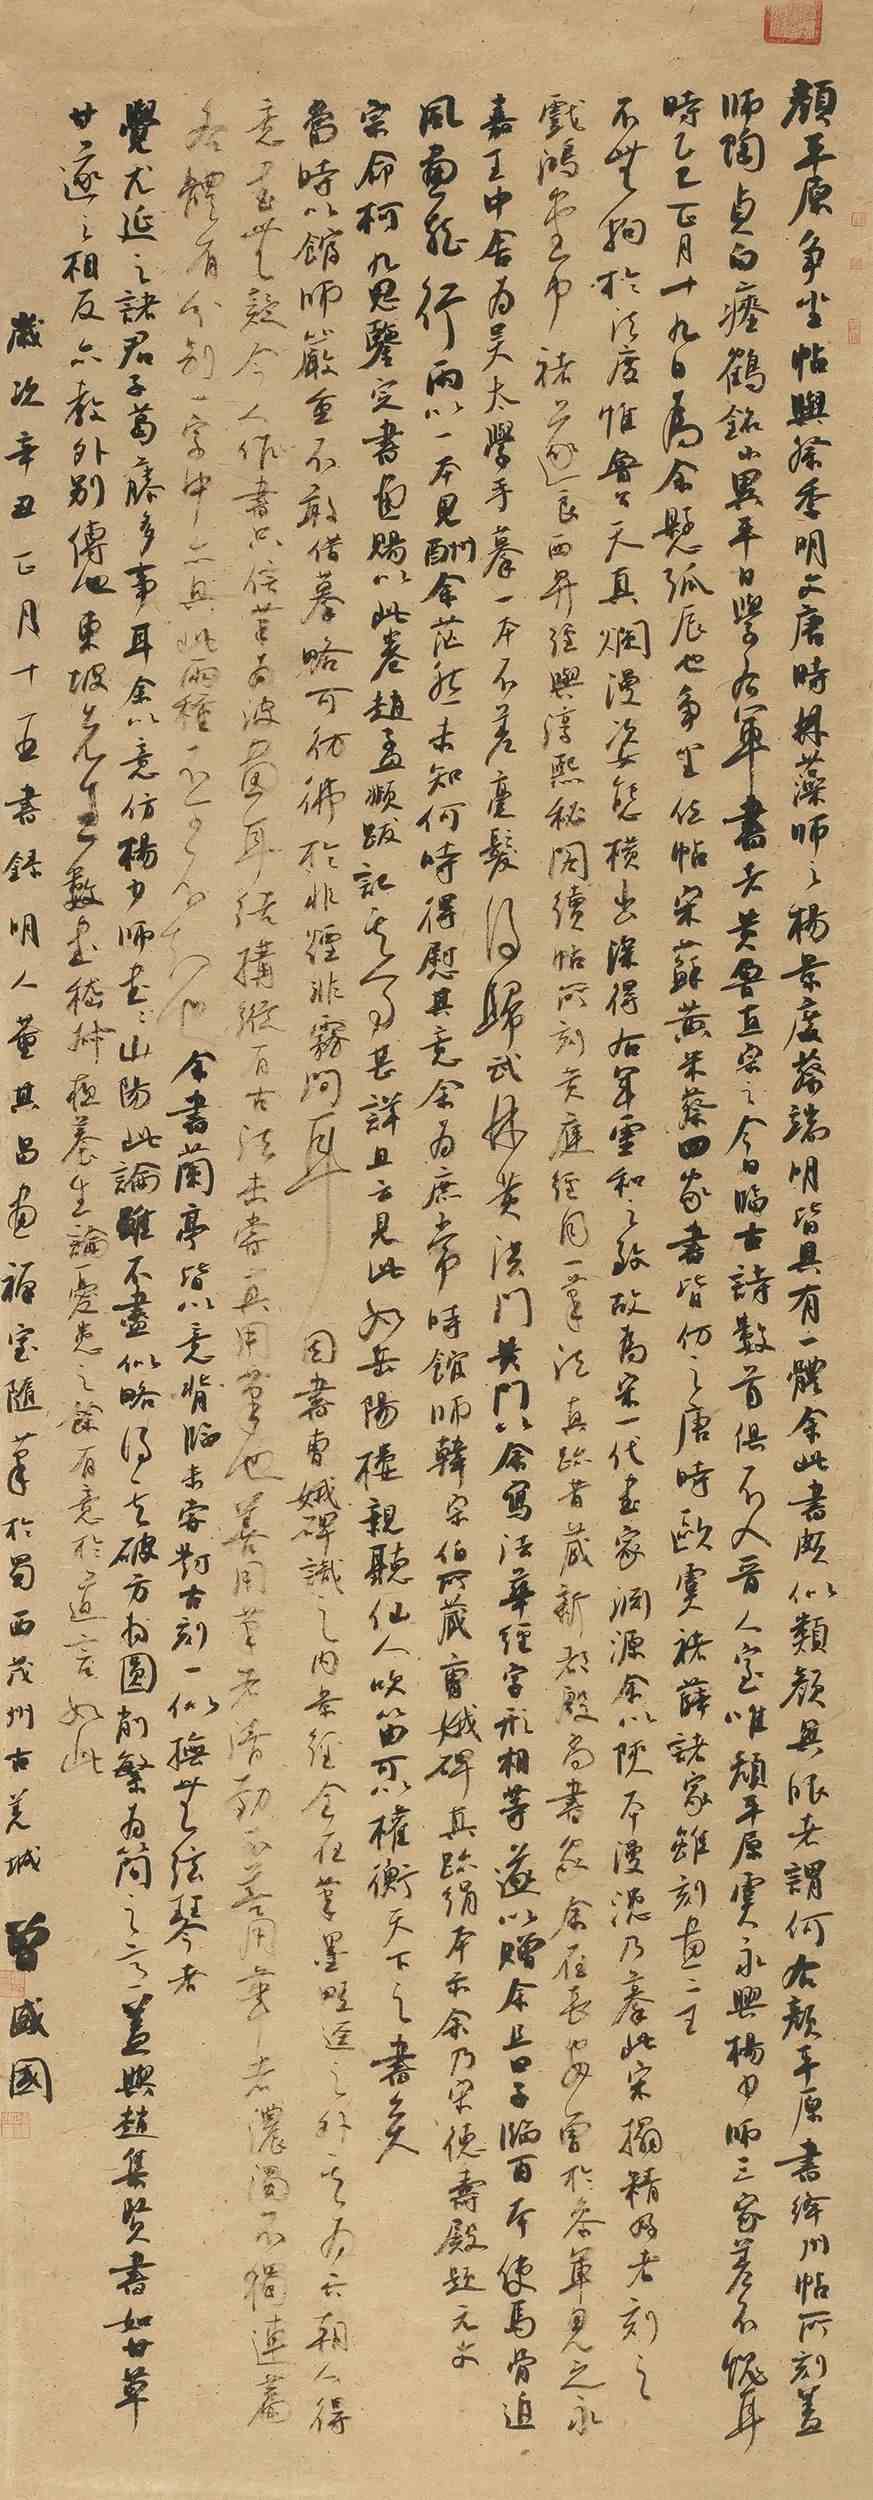 顏平原争坐帖與祭季明文唐時林藻師之楊景度蔡端明皆具有一體余此書頗似類顏具眼者謂何右顏平原書絳州帖所刻蓋
師陶貞白瘞鶴銘小異平日學右軍書者黄魯直宗之今日臨古詩數首俱不入晉人室唯顏平原虞永興楊少師三家差不愧耳
時乙巳正月十九日爲余懸弧辰也争坐位帖宋蘇黄米蔡四家書皆仿之唐時歐虞褚薛諸家雖刻畫二王
不無拘於法度惟魯公天真爛漫姿態横出深得右軍靈和之致故爲宋一代書家淵源余以陝本漫漶乃摹此宋搨精好者刻之
戲鴻堂中褚遂良西昇經與淳熙秘閣續帖所刻黄庭經同一筆法真跡昔藏新都殷尚書家余在長安曾於參軍見之永
嘉王中舍爲吴太學手摹一本不差毫髮得歸武林黄洪門黄門以余寫法華經字形相等遂以贈余且曰子臨百本使馬骨追
風畫龍行雨以一本見酬余茫然未知何時得慰其意余爲庶常時館師韓宗伯所藏曹娥碑真跡絹本示余乃宋德壽殿題元文
宗命柯九思鑒定書畫賜以此卷趙孟頫跋記其事甚詳且云見此如岳陽樓親聽仙人吹笛可以權衡天下之書矣
當時以館師嚴重不敢借摹略可彷彿於非煙非霧間耳 因書曹娥碑識之内景經全在筆墨畦逕之外其爲六朝人得
意書無疑今人作書只信筆爲波畫耳結構縱有古法未嘗真用筆也善用筆者清勁不善用筆者濃濁不獨連篇
各體有分别一字中亦具此兩種不可不知也 余書蘭亭皆以意背臨未嘗對古刻一似撫無弦琴者
覺尤延之諸君子葛藤多事耳余以意仿楊少師書書山陽此論雖不盡似略得其破方爲圓削繁爲簡之意蓋與趙集賢書如甘草
甘遂之相反亦教外别傳也東坡先生數書嵇叔夜養生論憂患之餘有意於道言如此
歲次辛丑正月十五書録明人董其昌畫禪室隨筆於蜀西茂州古羌城 曾國